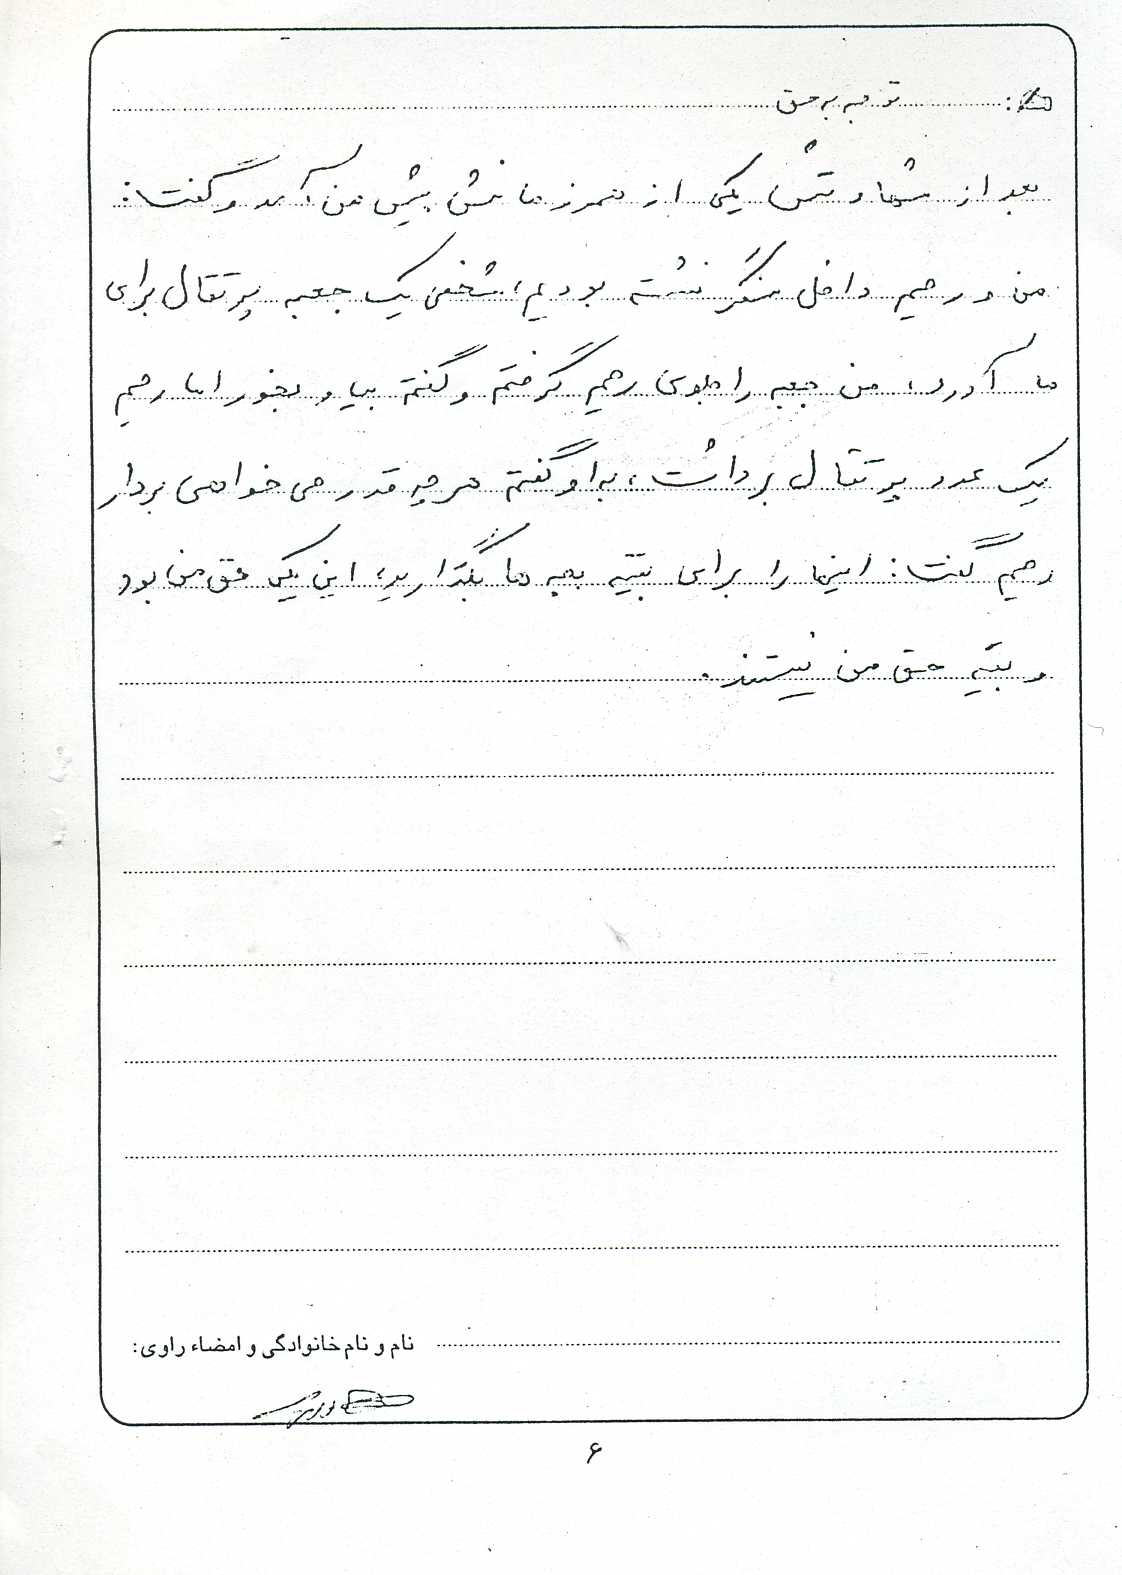 توجه به حق
بعد از شهادتش یکی از همرزمانش پیش من آمد و گفت:
من و رحیم داخل سنگر نشسته بودیم، شخصی یک جعبه پرتقال برای
ما آورد، من جعبه را جلوی رحیم گرفتم و گفتم بیا و بخور اما رحیم
یک عدد پرتقال برداشت، به او گفتم هر چه قدر می خواهی بردار
رحیم گفت: اینها را برای بقیه بچه ها بگذارید، این یکی حق من بود
و بقیه حق من نیستند.
نام و نام خانوادگی و امضاء راوی:
۶